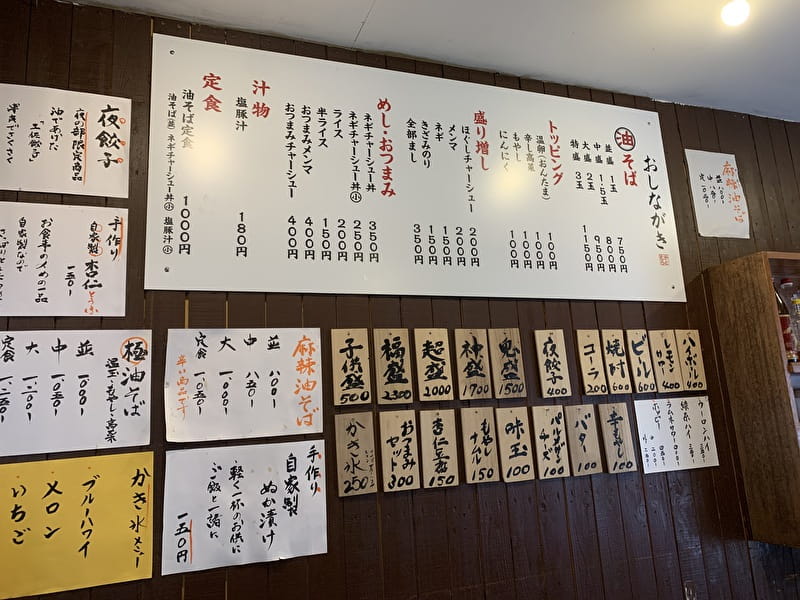 おしながき
油そば
並盛 1玉 750円
中盛 1.5玉 800円
大盛 2玉 950円
特盛 3玉 1150円
トッピング
温卵(おんたま) 100
辛し高菜 100
もやし 100
にんにく 100円
盛り増し
ほぐしチャーシュー 200円
メンマ 200円
ネギ 150円
きざみのり 150円
全部まし 350円
めし・おつまみ
ネギチャーシュー丼 350円
ネギチャーシュー丼小 250円
ライス 200円
半ライス 150円
おつまみメンマ 400円
おつまみチャーシュー 400円
汁物
塩豚汁 180円
定食
油そば定食 1000円
油そば(並) ネギチャーシュー丼小 塩豚汁小
麻辣油そば
夜餃子
夜の部限定商品
油であげた
手作り
自家製 杏仁とうふ
一五〇-
お食事の〆の一品
自家製なので
極油そば
温玉・もやし・高菜
並 一〇〇〇-
中 一〇五〇-
大 一二〇〇-
定食 一二五〇-
麻辣油そば
並 八〇〇-
中 八五〇-
大 一〇〇〇-
定食 一〇五〇-
辛い商品です
かき氷メニュー
ブルーハワイ
メロン
いちご
手作り
自家製
ぬか漬け
・軽く一杯のお供に
・ご飯と一緒に
一五〇円
ハイボール 400
レモンサワー 400
ビール 600
焼酎 600
コーラ 200
夜餃子 400
鬼盛 1500
神盛 1700
超盛 2000
福盛 2300
子供盛 500
辛もやし 100
バター 100
パルメザンチーズ 100
味玉 100
もやしナムル 150
杏仁豆腐 150
おつまみセット 300
かき氷 250
ウーロンハイ
緑茶ハイ